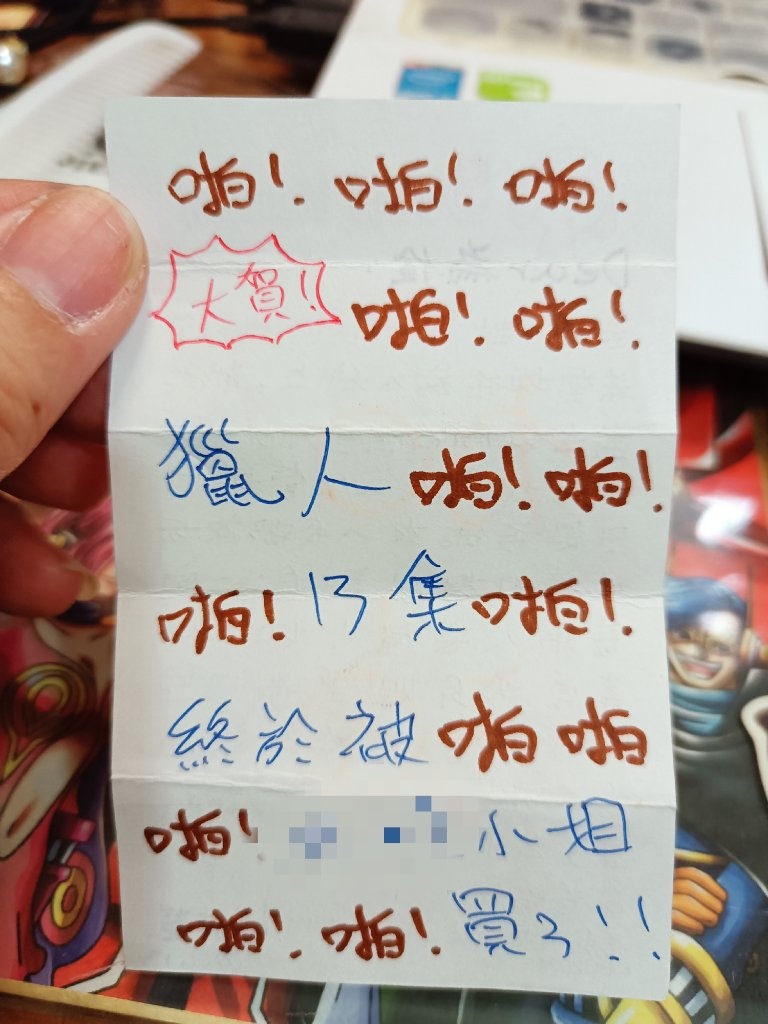 啪!.啪!.啪!.
大賀! 啪!.啪!.
獵人啪!.啪!.
啪!.13集啪!.
終於被啪啪
啪!小姐
啪!.啪!.買了!!